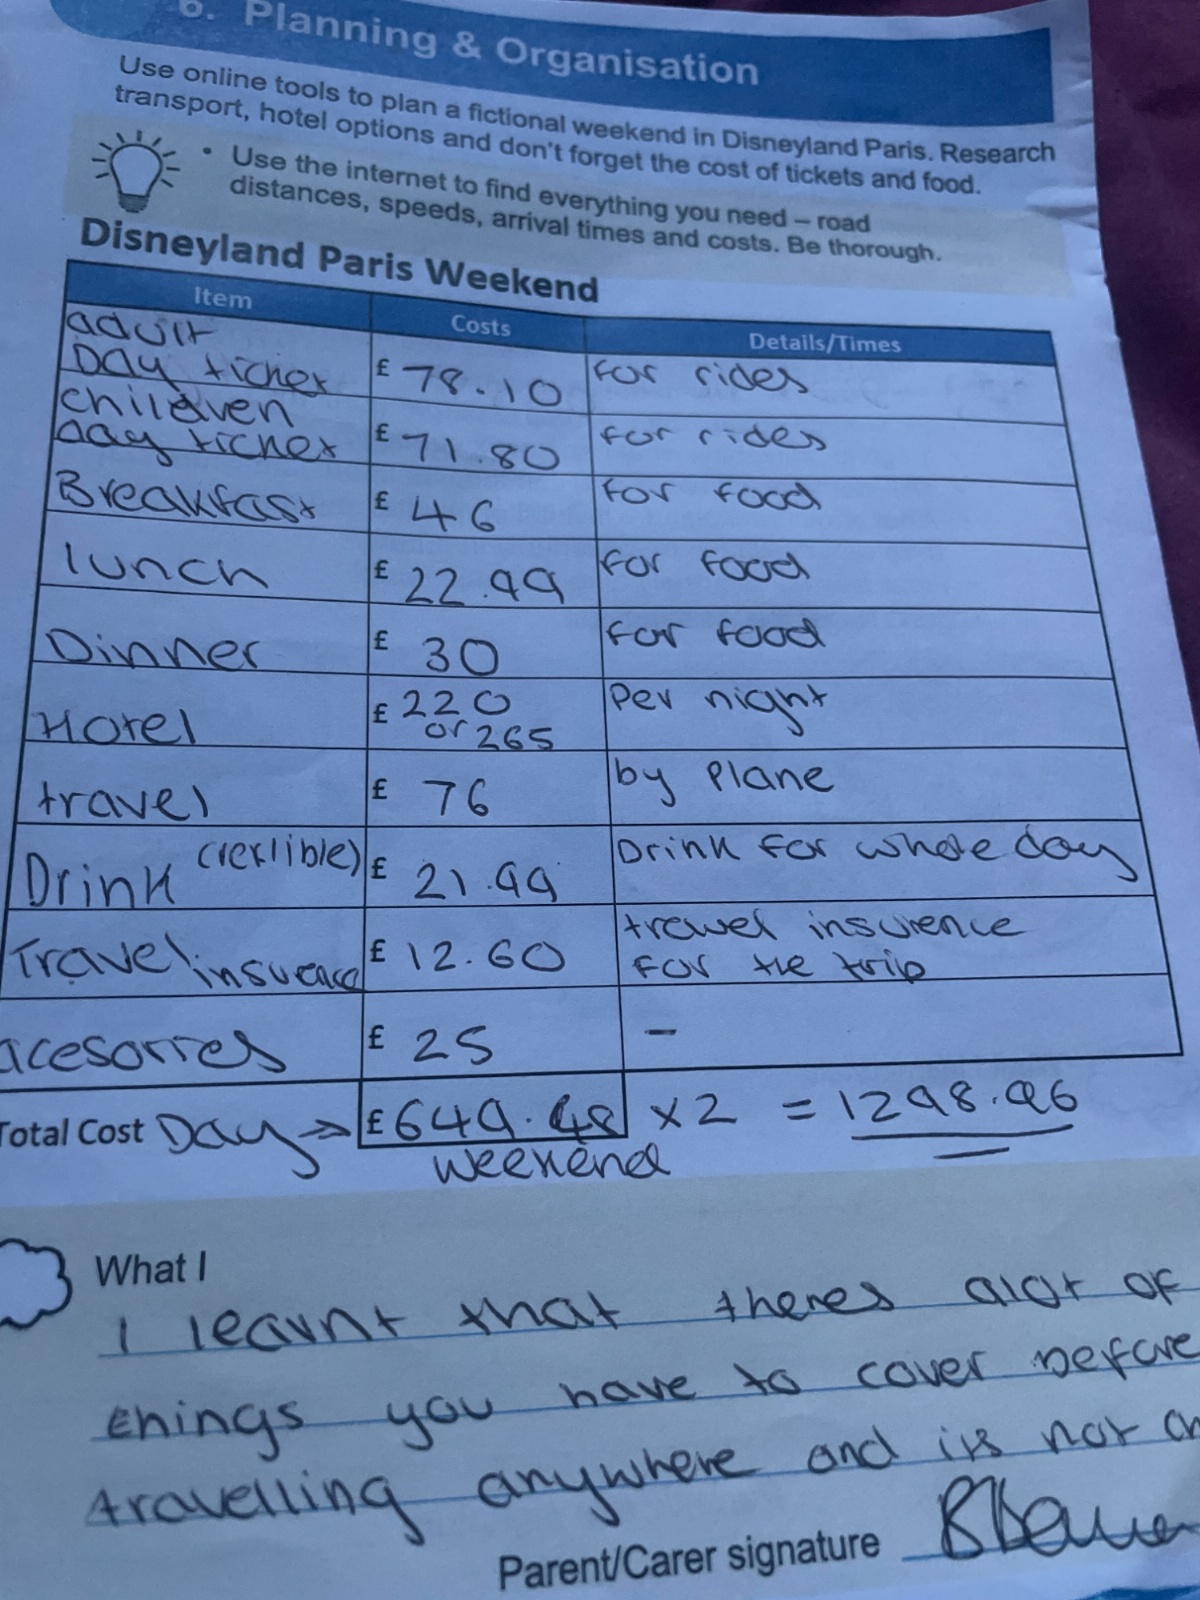 6. Planning & Organisation
Use online tools to plan a fictional weekend in Disneyland Paris. Research
transport, hotel options and don't forget the cost of tickets and food.
• Use the internet to find everything you need – road
distances, speeds, arrival times and costs. Be thorough.
Disneyland Paris Weekend
Item Costs Details/Times
adult
Day ticket £ 78.10 for rides
children
day ticket £ 71.80 for rides
Breakfast £ 46 for food
lunch £ 22.99 for food
Dinner £ 30 for food
Hotel £ 220 or 265 Per night
travel £ 76 by plane
Drink (refilible) £ 21.99 Drink for whole day
Travel insurence £ 12.60 travel insurence
for the trip
acesorries £ 25 –
Total Cost Day → £649.48 x 2 = 1298.96
weekend
What I
I learnt that theres alot of
things you have to cover before
travelling anywhere and its not
Parent/Carer signature